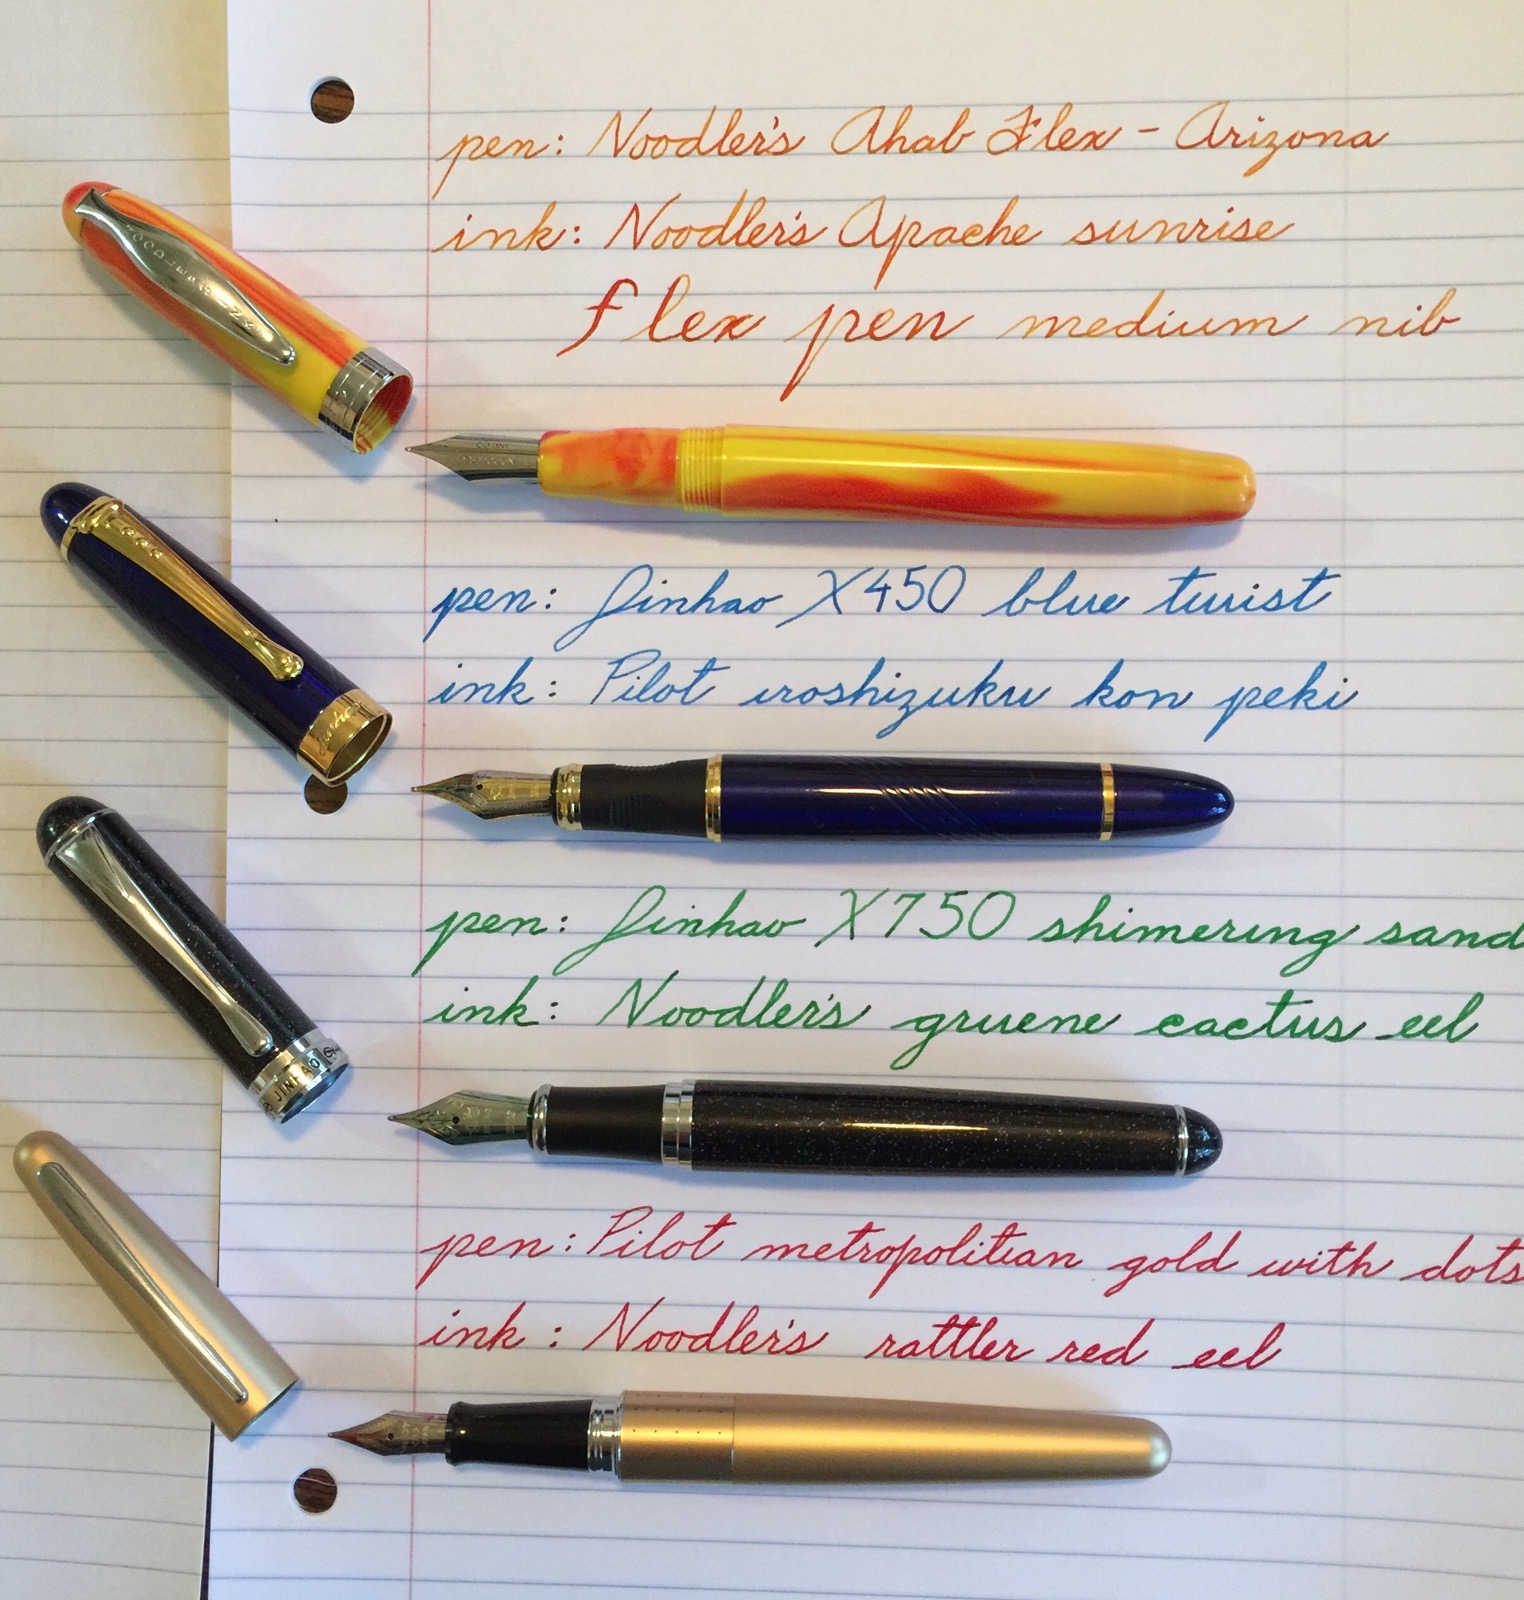 pen: Noodler's Ahab Flex - Arizona
ink: Noodler's Apache sunrise
flex pen medium nib
pen: Jinhao X450 blue twist
ink: Pilot iroshizuku kon peki
pen: Jinhao X750 shimering sand
ink: Noodler's gruene cactus eel
JINHAO
pen: Pilot metropolitian gold with dots
ink: Noodler's rattler red eel